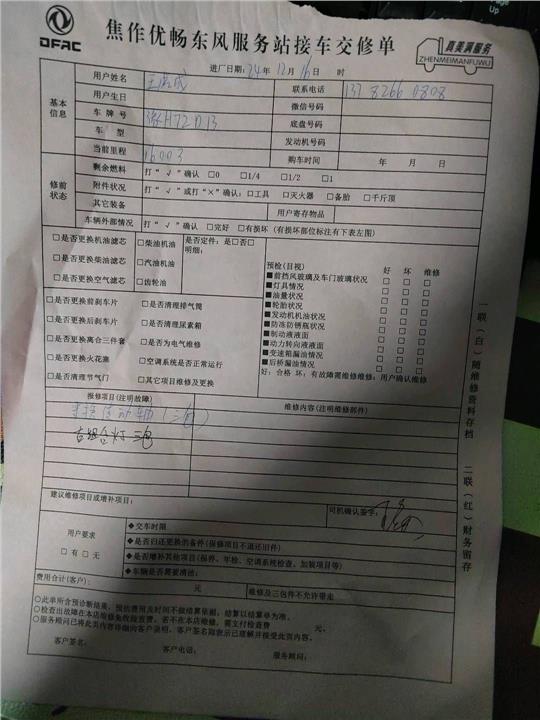 DFAC
焦作优畅东风服务站接车交修单
真美满服务
ZHENMEIMANFUWU
进厂日期：24年 12月 16日 时
基本信息
用户姓名
联系电话 137 8266 0808
用户生日 微信号码
车 牌 号 H72D13 底盘号码
车 型 发动机号码
当前里程 16003 购车时间 年 月 日
修前状态
剩余燃料 打“√”确认 □0 □1/4 □1/2 □1
附件状况 打“√”或打“×”确认：□工具 □灭火器 □备胎 □千斤顶
其它装备 用户寄存物品
车辆外部情况 打“√”确认 □完好 □有损坏（有损坏部位标注有下表左图）
□是否更换机油滤芯 □柴油机油 是否定件：是□否□
明细：
□是否更换柴油滤芯 □汽油机油
□是否更换空气滤芯 □齿轮油
□是否更换前刹车片 □是否清理排气筒
□是否更换后刹车片 □是否清理尿素箱
□是否更换离合三件套 □是否为电气维修
□是否更换火花塞 □空调系统是否正常运行
□是否清理节气门 □其它项目维修及更换
预检(目视) 好 坏 维修
■前挡风玻璃及车门玻璃状况 □ □ □
■灯具情况 □ □ □
■油量状况 □ □ □
■轮胎状况 □ □ □
■发动机机油状况 □ □ □
■防冻防锈瓶状况 □ □ □
■制动液液面 □ □ □
■动力转向液液面 □ □ □
■变速箱漏油情况 □ □ □
■后桥漏油情况 □ □ □
好：合格 坏：有故障需维修维修：用户确认维修
报修项目(注明故障) 维修内容(注明维修部件)
传动轴（三包）
右组合灯 三包
建议维修项目或增补项目：
司机确认签字：
用户要求
□有 □无
◆交车时限
◆是否归还更换的备件(报修项目不退还旧件)
◆是否增补其他项目(报停、年检、空调系统检查、加装项目等)
◆车辆是否需要清洁：
费用合计(客户)： 元 维修及三包件不允许带走
○此单所含预诊断结果、预估费用及时间不做结算依据，结算以结算单为准。
○检查出故障在本店维修免收检查费，若不在本店维修，需支付检查费 元。
○服务顾问已将此页内容详细向客户说明，客户签名即表示已理解并接受此页内容。
客户签名： 客户电话： 服务顾问：
一联（白）随维修资料存档
二联（红）财务留存